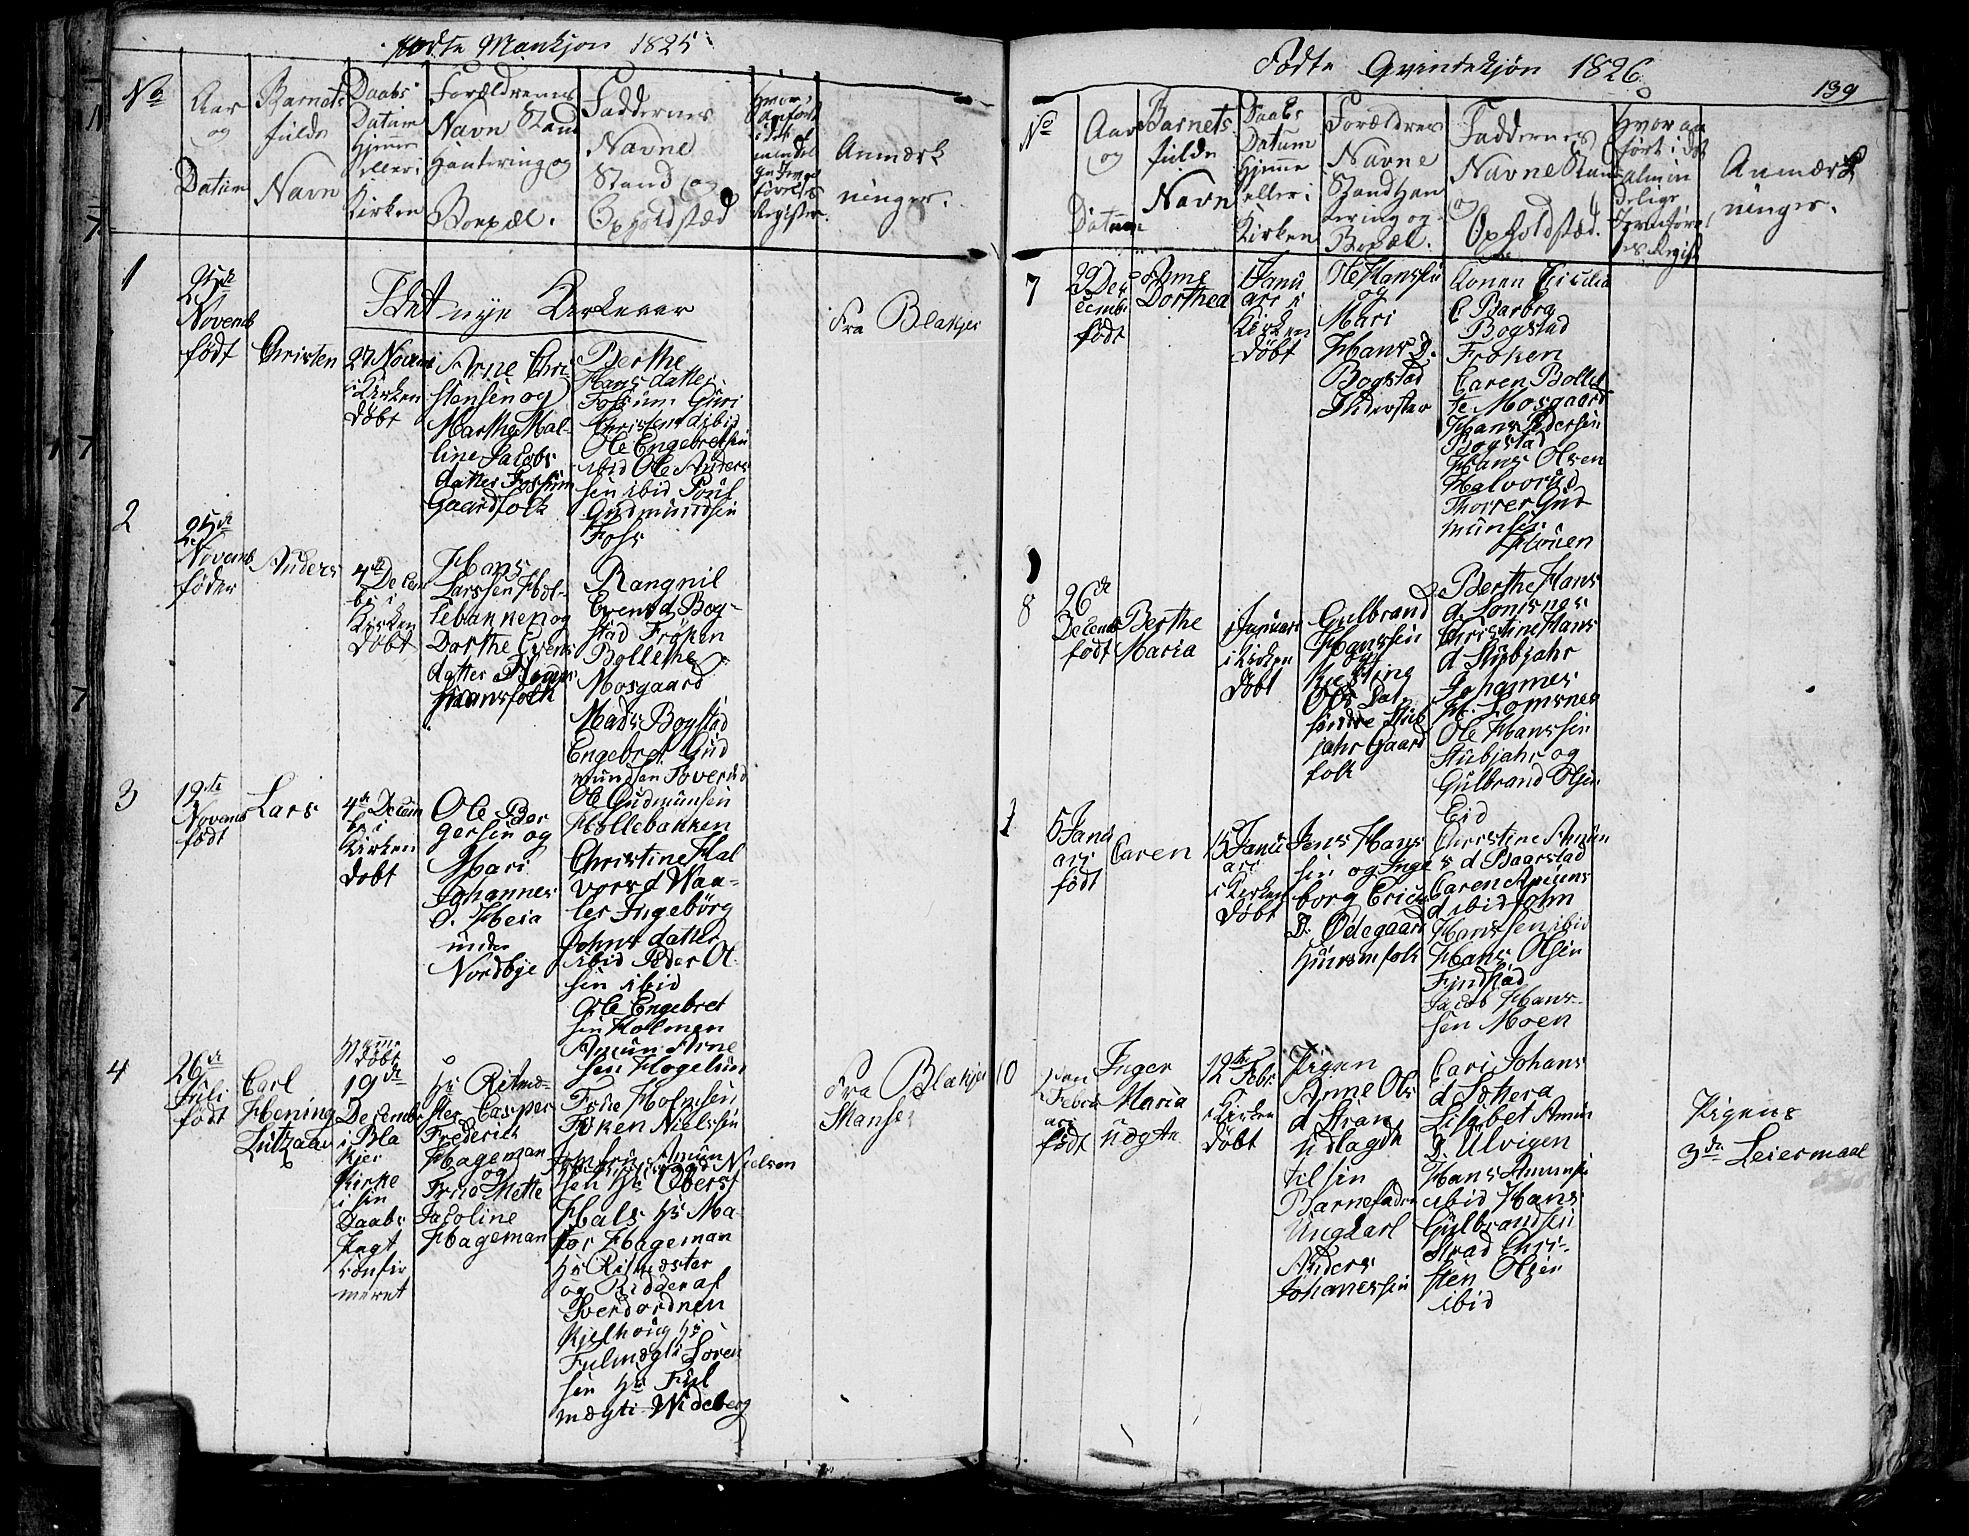 Fødte Mankjøn 1825
No
Aar
og
Datum
Barnets
fulde
Navn
Daabs
Datum
Hjemme
eller i
Kirken
Forældrenes
Navn Stand
Hantering og
Boepæl.
Faddernes
Navne
Stand og
Opholdstæd
Anmærk
ninger.
1
25de
Novemb
født
Christen
I det nye Kirkeaar
27 Novem
i Kirken
døbt
Arne Chri
stensen og
Marthe Mal-
line Jacobs
datter Fossum
Gaardfolk
Berthe
Hans datter
Fossum Guri
Christensd ibid
Ole Engebretsen
ibid Ole Anders
sen ibid Poul
Gudmundsen
Foss
Fra Blakjer
2
25de
Novemb
føder
Anders
4de Decem
br i
Kirken
døbt
Hans
Larssen Hol-
lebakken og
Dorthe Evens
datter
Rangnil
Evens d Bog-
stad Frøken
Bollethe
Mosgaard
Mads Bogstad
Engebret Gud
mundsen Soverud
Ole Gudmunsen
Hollebakken
3
12te
Novemb
født
Lars
4de Decem
br i
Kirken
døbt
Ole Ber
gersen og
Mari
Johannes
D. Heia
under
Nordbye
Christine Hal
vors d Waa-
ler Ingeborg
Johns datter
ibid Peder Ol
sen ibid
Ole Engebret
sen Holmen
Amun Arne
sen Hogelund
4
26de
Juli
født
Carl
Hening
Lutzaau
Hjemme
døbt
19de
Decembr
i Bla
kjer
Kirke
i sin
Daabs
Pagt
confir
meret
Hr Ritmæ-
ster Casper
Frederich
Hageman
og
Frue Mette
Jacoline
Hageman
Frue Holmsen
Frøken Nielssen
Jomfru Amun
sen Hr Oberst
Hals Hr Ma-
jor Hageman
Hr Ritmæster
og Ridder af
Sverdordnen
Kjelhoug Hr
Fulmægti Soren
sen Hr Ful
mægti Wideberg
Fra Blakjer
Fødte Qvindekjøn 1826
139
No
Aar
og
Datum
Barnets
fulde
Navn
Daabs
Datum
Hjemme
eller i
Kirken
Forældres
Navne
Stand Han
tering og
Bopæl.
Faddernes
Navne Stand
og
Opholdstæd.
Hvor an
ført i det
almin
delige
Jevnføre
ses Regist
Anmærk
ninger.
7
29 De
cemb
født
Anne
Dorthea
1 Janu
ari i
Kirken
døbt
Ole Hanssen
og
Mari
Hans D.
Bogstad
Konen Cicilia
E Barbra
Bogstad
Frøken
Caren Bollet
te Mosgaard
Hans Pedersen
Bogstad
Hans Olsen
Halvorud
Thorrer Gud
munsen
8
26de
Decemb
født
Berthe
Maria
1 Januari
i Kirken
døbt
Gulbrand
Hanssen
og
Ols Dat
søndre Stub
jahr Gaard
folk
Berthe Hans
d Lomsnes
Christine Hans
d Stubjahr
Johannes
H. Lomsnes
Ole Hanssen
Stubjahr og
Gulbrand Olsen
Eid
5 Janu
ari
født
Caren
15 Janu
ari
i Kirken
døbt
Jens Hans
sen og Inge
borg Erics
D. Ødegaard
Huusmfolk
Christine Amun
s d Baarstad
Caren Amuns
d ibid John
Hanssen ibid
Hans Olsen
Findstad
Jacob Hans-
sen Moen
10
Febru
ari
født
Inger
Maria
uægte
12te
Febr
i Kirken
døbt
Pigen
Anne Ols
d Stran
udlagde
til sin
Barnefader
Ungkarl
Anders
Johanessen
Cari Johans
d Sættera
Lisabet Amun
D. Ulvigen
Hans Amunsen
ibid Hans
Gulbrandsen
Strad Chri-
sten Olsen
ibid
Pigens
3de Leiermaal